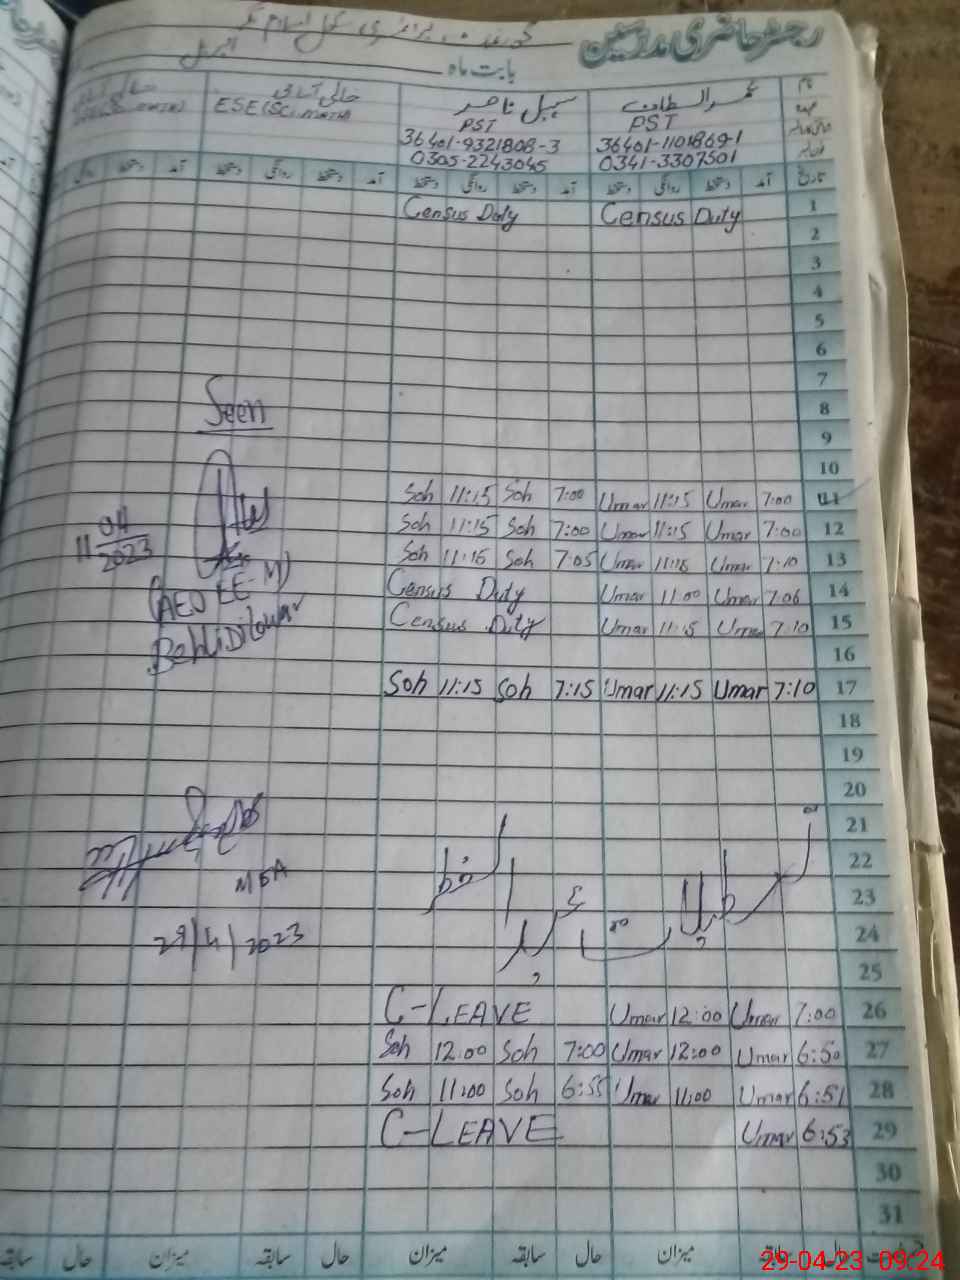 رجسٹر حاضری مدرسین
بابت ماہ اپریل
نام
خالی آسامی ESE(SCI.MATH)
سہیل ناصر PST 36401-9321808-3 0305-2243045
PST 36401-1101869-1 0341-3307501
تاریخ آمد دستخط روانگی دستخط آمد دستخط روانگی دستخط آمد دستخط روانگی دستخط آمد دستخط
Census Duty Census Duty 1
2
3
4
5
6
7
Seen 8
9
10
Soh 11:15 Soh 7:00 Umar 11:15 Umar 7:00 11
Soh 11:15 Soh 7:00 Umar 11:15 Umar 7:00 12
11 04/2023
Soh 11:15 Soh 7:05 Umar 11:15 Umar 7:10 13
(AEO EE-M)
Census Duty Umar 11:00 Umar 7:06 14
Census Duty Umar 11:15 Umar 7:10 15
16
Soh 11:15 Soh 7:15 Umar 11:15 Umar 7:10 17
18
19
20
21
22
MEA 23
تعطیلات عید الفطر
29/4/2023 24
25
C-LEAVE Umar 12:00 Umar 7:00 26
Soh 12:00 Soh 7:00 Umar 12:00 Umar 6:50 27
Soh 11:00 Soh 6:55 Umar 11:00 Umar 6:51 28
C-LEAVE Umar 6:53 29
30
31
سابقہ حال میزان سابقہ حال میزان سابقہ حال میزان سابقہ حال
29-04-23 09:24